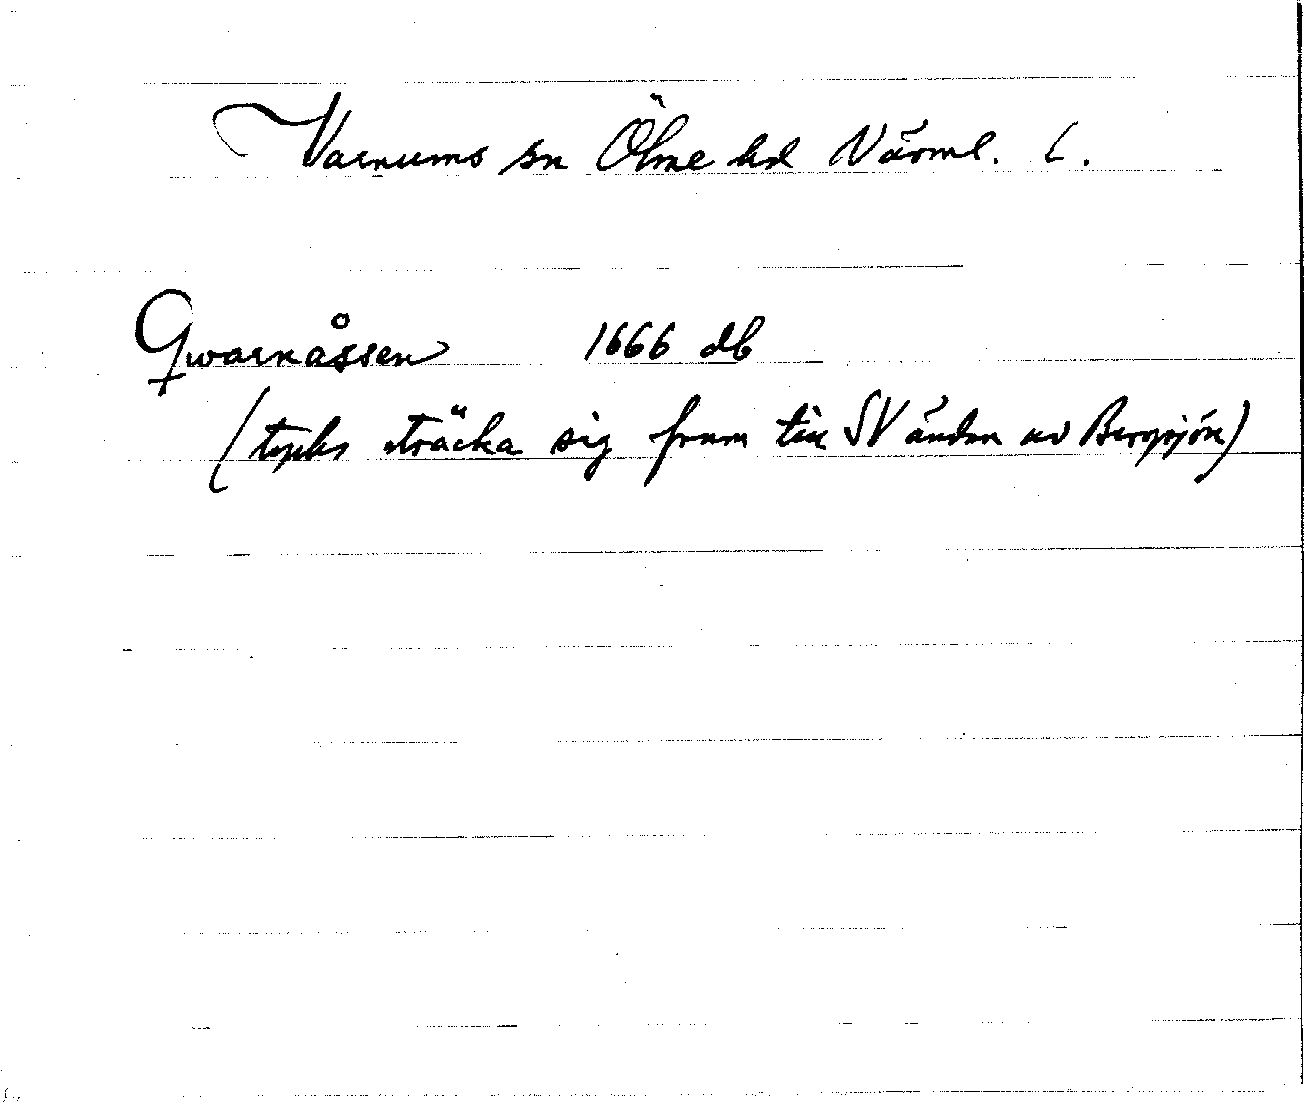 Varnums sn Ölme hd Värml. L.
Qwarnåssen 1666 db
(tycks sträcka sig fram till SV änden av Bergsjön)